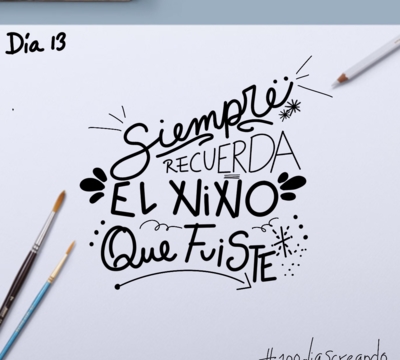 Día 13
Siempre
RECUERDA
EL NIÑO
Que FuiSTE
#100diascreando